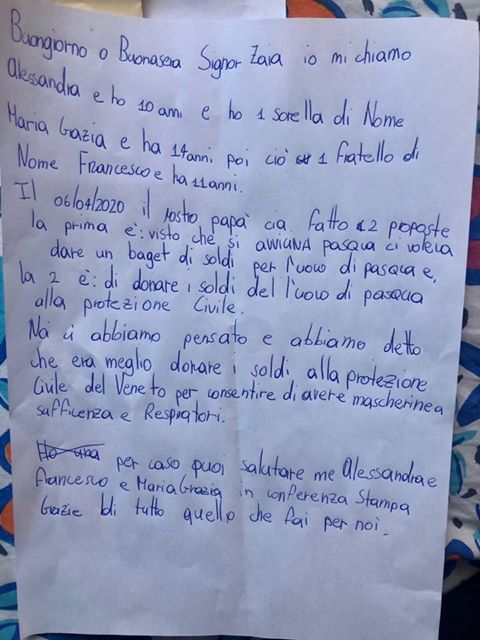 Buongiorno o Buonasera Signor Zaia io mi chiamo
Alessandra e ho 10 anni e ho 1 sorella di Nome
Maria Grazia e ha 14 anni poi ciò 1 fratello di
Nome Francesco e ha 11 anni.
Il 06/04/2020 il nostro papà cia fatto 2 proposte
la prima è: visto che si avviCINA pasqua ci voleva
dare un baget di soldi per l'uovo di pasqua e,
la 2 è: di donare i soldi del l'uovo di pasqua
alla protezione Civile.
Noi ci abbiamo pensato e abbiamo detto
che era meglio donare i soldi alla protezione
Civile del Veneto per consentire di avere mascherine a
sufficenza e Respiratori.
Ho una per caso puoi salutare me Alessandra e
Francesco e Maria Grazia in conferenza Stampa
Grazie di tutto quello che fai per noi.